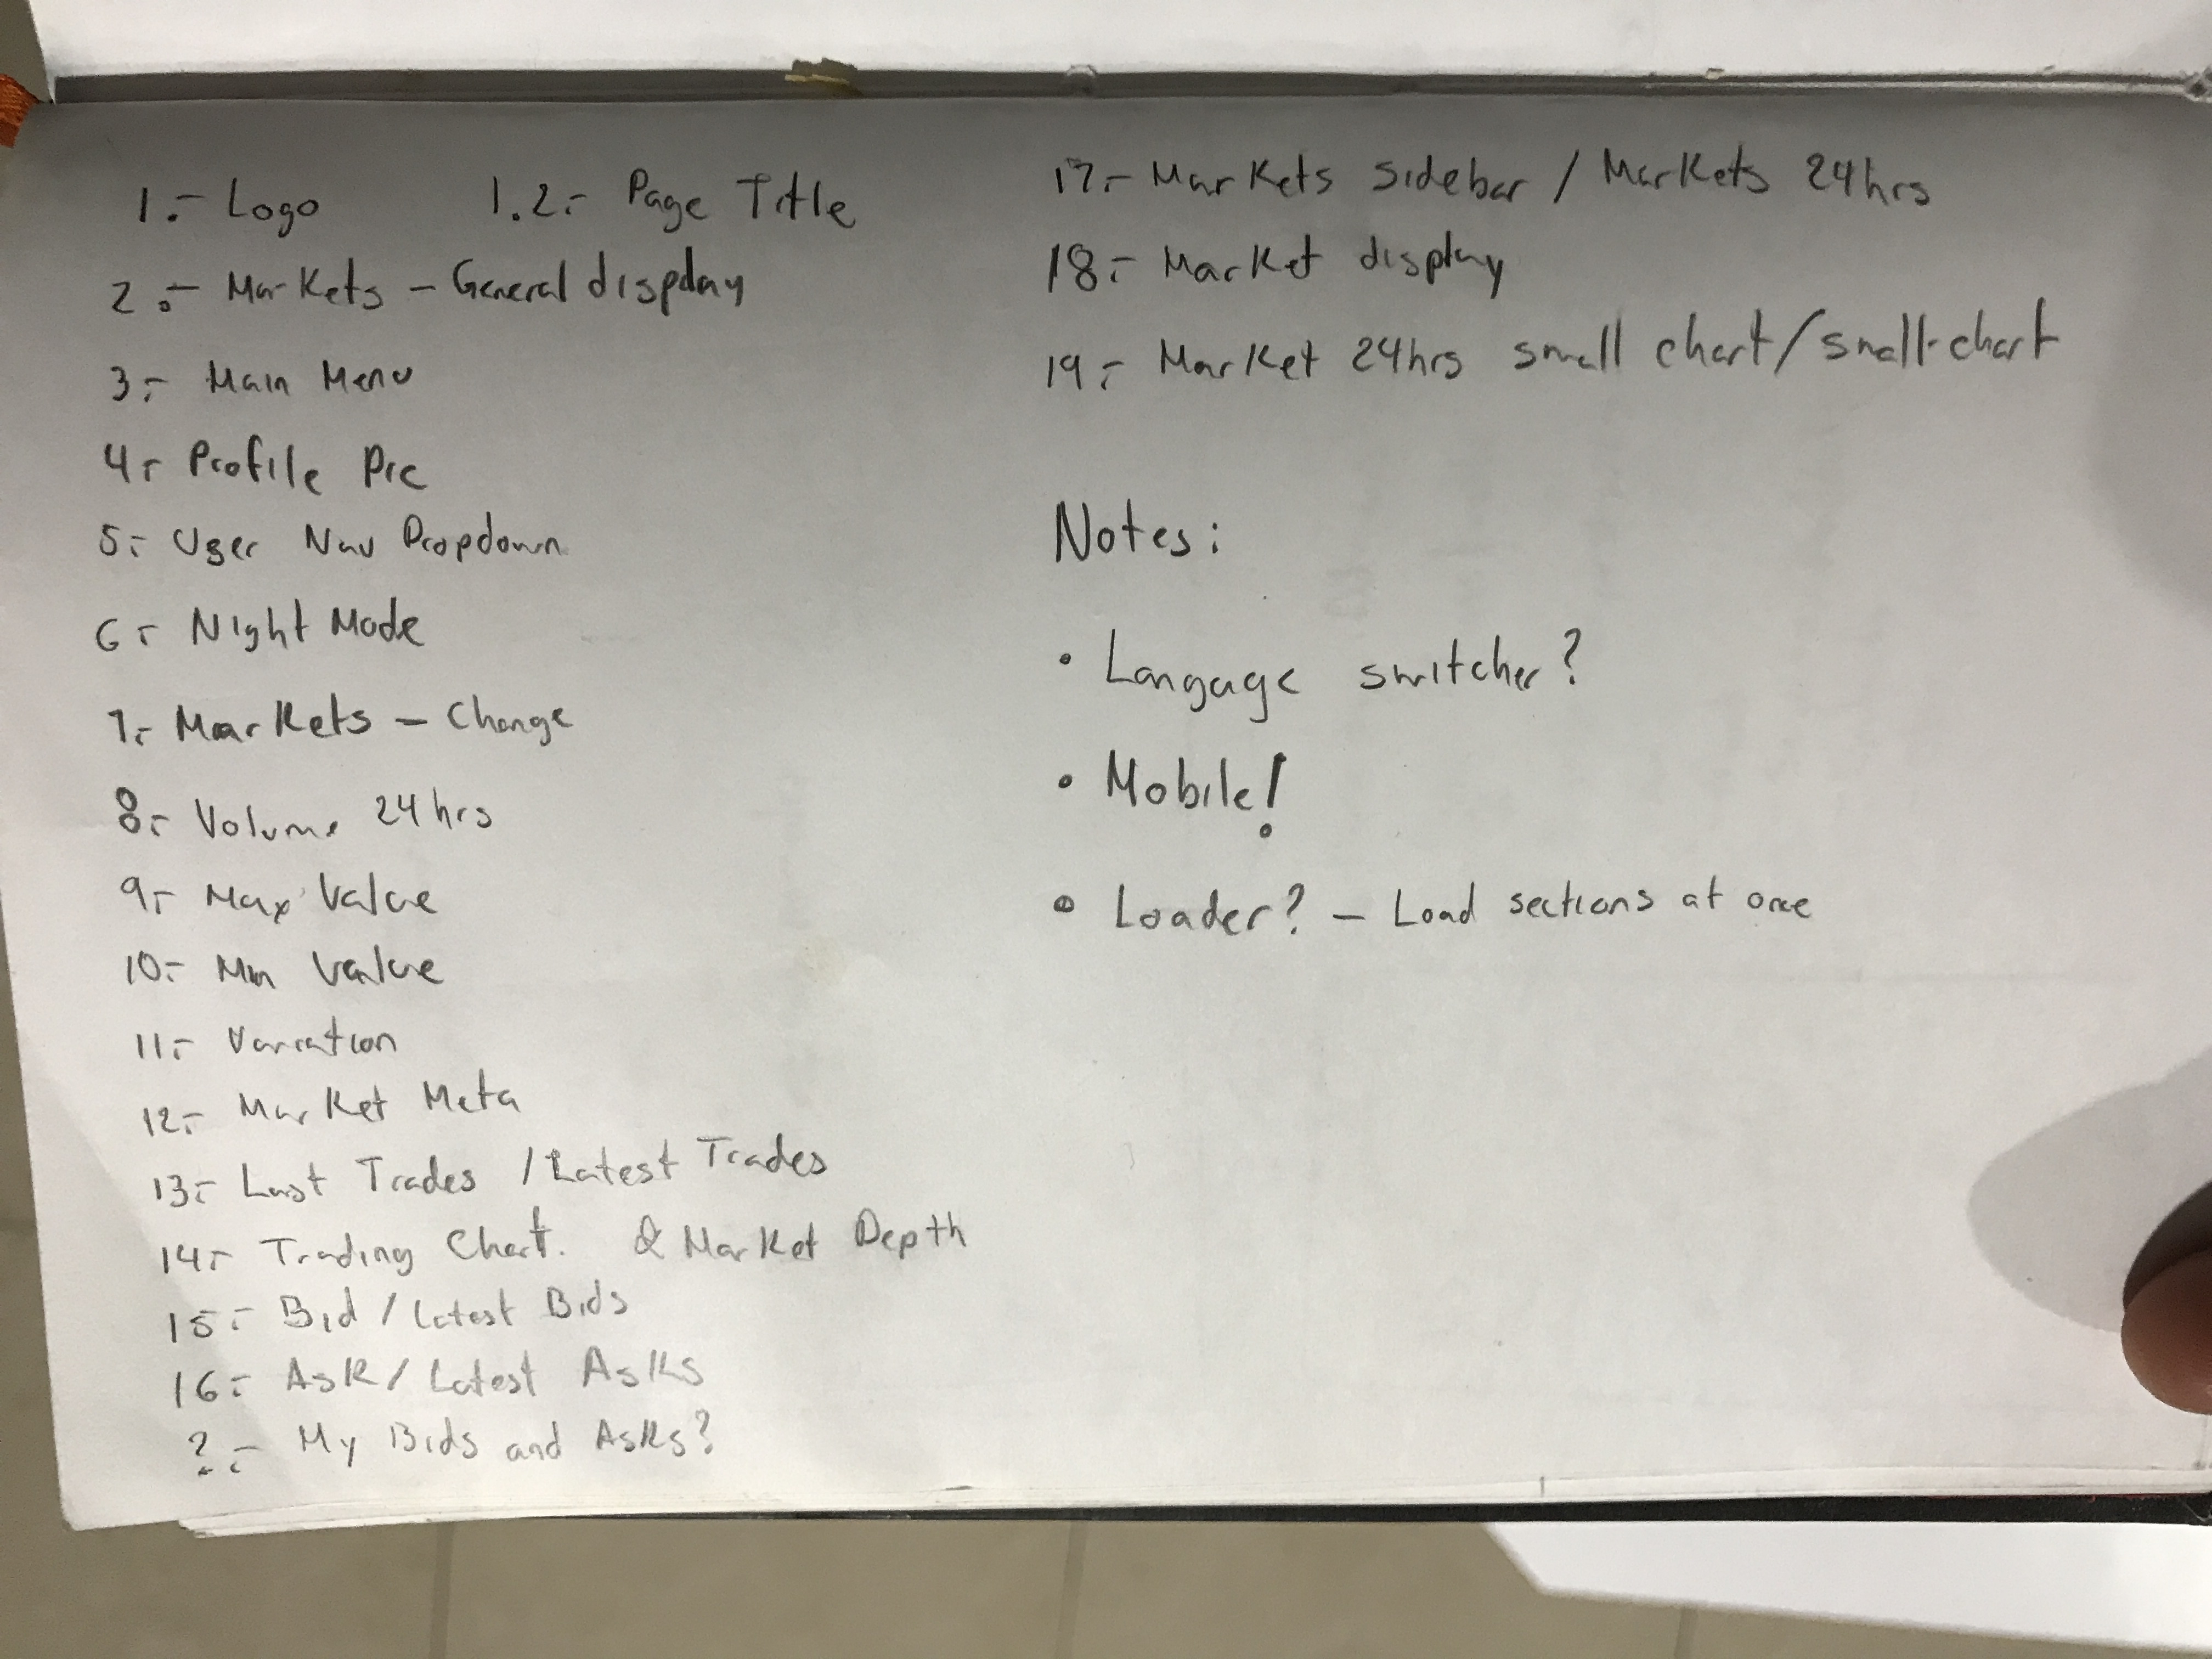 1.- Logo 1.2.- Page Title
2.- Markets - General display
3.- Main Menu
4.- Profile Pic
5.- User Nav Dropdown
6.- Night Mode
7.- Markets - Change
8.- Volume 24hrs
9.- Max Value
10.- Min Value
11.- Variation
12.- Market Meta
13.- Last Trades / Latest Trades
14.- Trading Chart. & Market Depth
15.- Bid / Latest Bids
16.- Ask / Latest Asks
?.- My Bids and Asks?
17.- Markets sidebar / Markets 24hrs
18.- Market display
19.- Market 24hrs small chart / small-chart
Notes:
• Langage switcher?
• Mobile!
• Loader? - Load sections at once